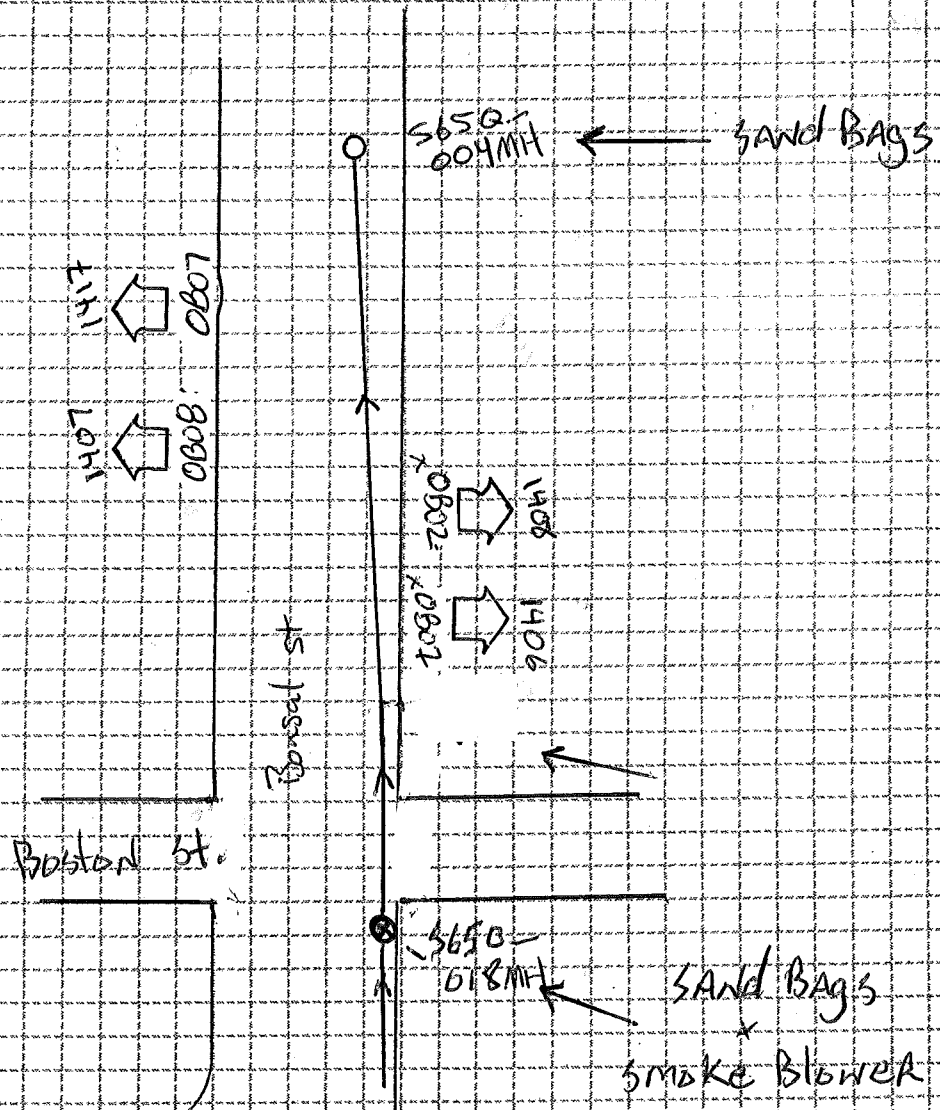 S65Q-
004MH
SANd BAgs
1417
OB07
1407
OB08
OB02
1408
OB02
1406
Bonsal st
Boston St.
018MH
SANd BAgs
smoke Blower